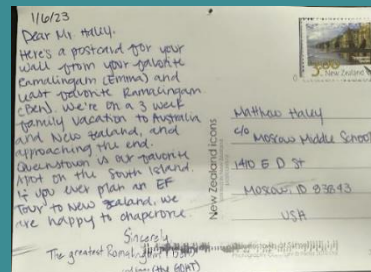 1/6/23
Dear Mr. Haley.
Here's a postcard for your
wall from your favorite
Ramalingam (Emma) and
last favorite Ramalingam
(Ben). We're on a 3 week
family vacation to Australia
and New Zealand, and
approaching the end.
Queenstown is our favorite
spot on the South Island.
If you ever plan an EF
Tour to New Zealand, we
are happy to chaperone.
Sincerely,
The greatest
(the GOAT)
New Zealand icons
New Zealand
Matthew Haley
c/o Moscow Middle School
1410 E D St
Moscow, ID 83843
USA